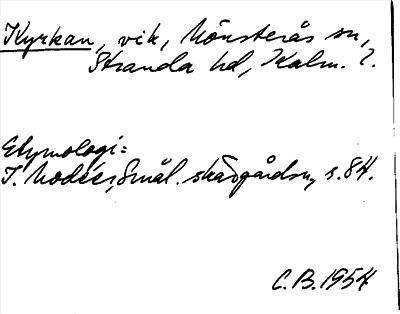 Kyrkan, vik, Mönsterås sn,
Stranda hd, Kalm. l.
Etymologi:
I. Modéer, Smål. skärgårdsn, s. 84.
C.B. 1954